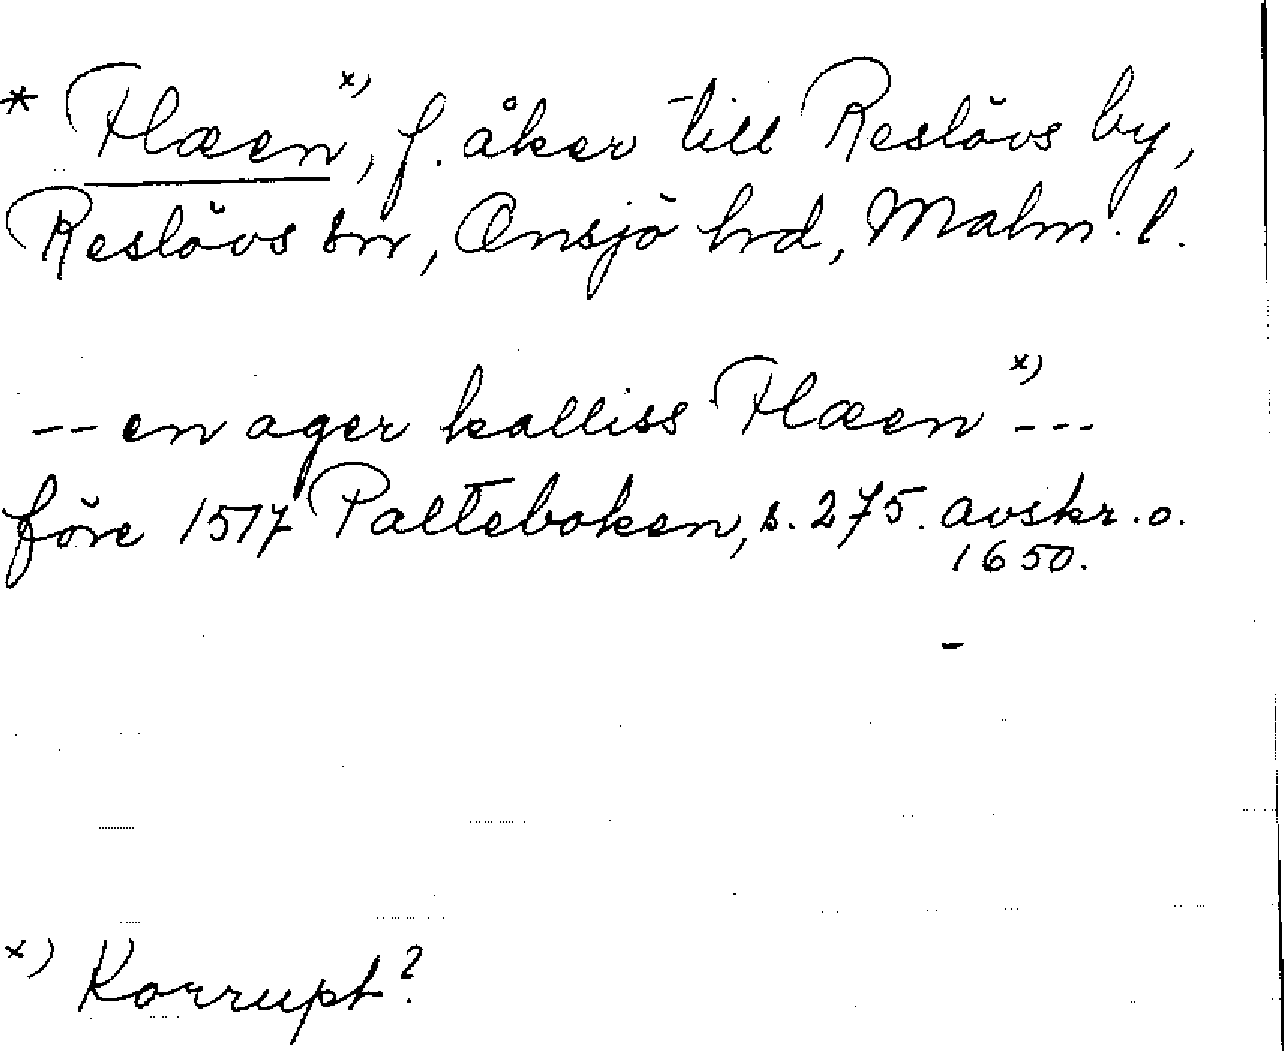 * Flæen x), f. åker till Reslövs by,
Reslövs sn, Onsjö hrd, Malm. l.
-- en ager kalliss Flæen x) ---
före 1517 Palteboken, s. 275. avskr. o.
1650.
-
x) Korrupt?